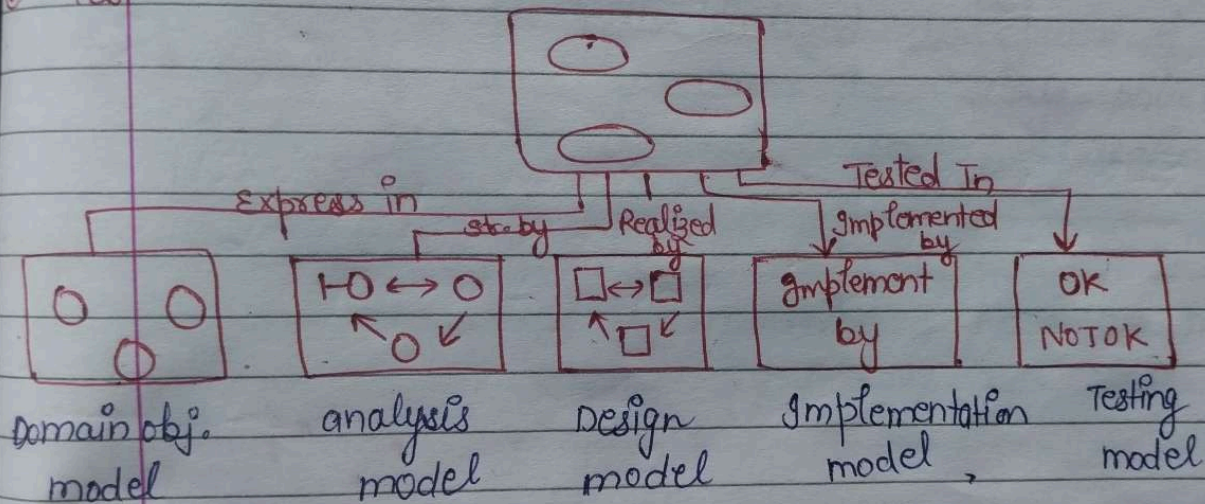 Tested In
Express in
st. by
Realized
by
Implemented
by
Implement
by
OK
NOT OK
Domain obj.
model
analysis
model
Design
model
Implementation
model,
Testing
model